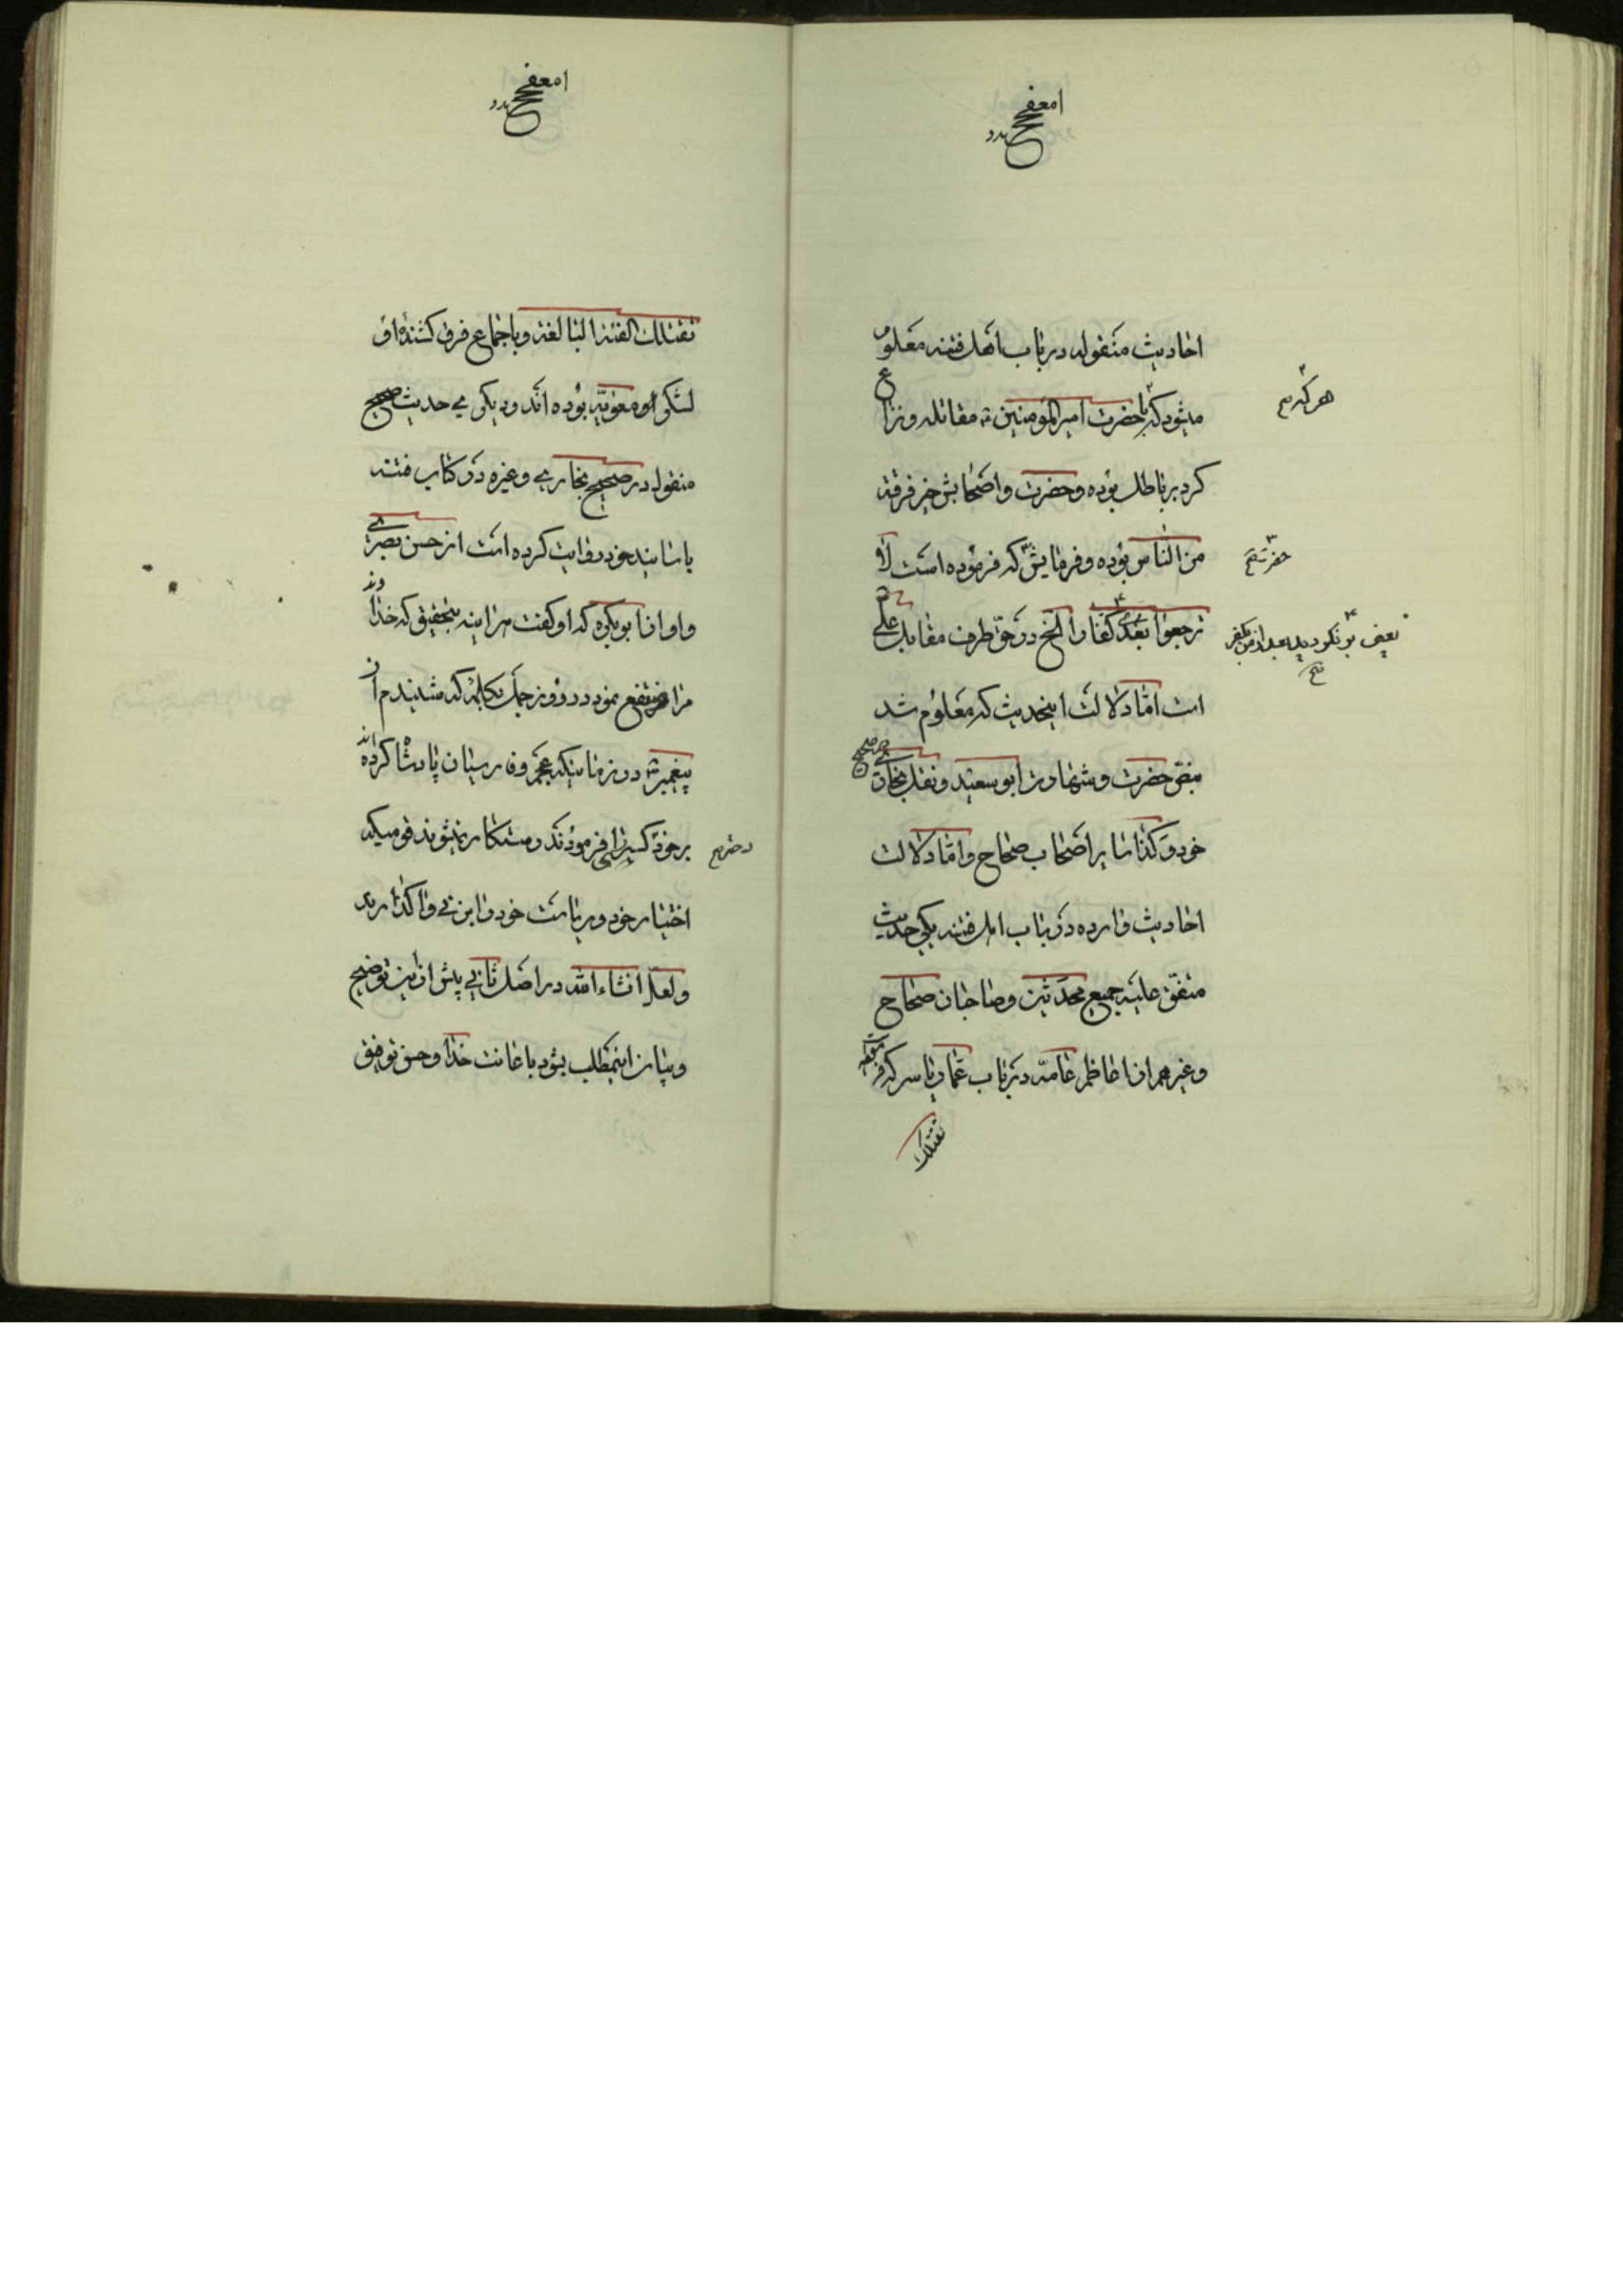 احادیث منقوله در باب اهل فتنه معلوم
میشود که با حضرت امیرالمؤمنین مقاتله و نزاع
هر که
کرد بر باطل بوده و حضرت و اصحابش خیر فرقة
من الناس بوده و فرمایش که فرموده است لا
حضرت
ترجعوا بعدی کفارا الخ در حق طرف مقابل علی
است اما دلالت اینحدیث که معلوم شد
بنص حضرت و شهادت ابو سعید و نقل بخاری
صحیح
خود و کذا سایر اصحاب صحاح و اما دلالت
احادیث وارده در باب اهل فتنه یکی حدیث
متفق علیه جمیع محدثین و صاحبان صحاح
و غیرهم از اعاظم عامه در باب عمار یاسر که فرموده
تقتلک
تقتلک الفئة الباغیة و باجماع فرق کشنده او
لشکر معویه بوده اند و دیگری حدیث صحیح
منقول در صحیح بخاری و غیره در کتاب فتنه
باسانید خود روایت کرده است از حسن بصری
و او از ابو بکره که او گفت هر اینه بتحقیق که خداوند
مرا منتفع نمود در روز جمل بکلمه که شنیدم از
پیغمبر در زمانیکه عجم و فارسیان پادشاه کرده اند
بر خود کسری را فرمودند رستکار نمیشوند قومیکه
دختر
اختیار خود و ریاست خود را بزنی واکذارند
ولعل انشاء الله در اصل ثانی پیش از این توضیح
و بیان اینمطلب بشود باعانت خدا و حسن توفیق